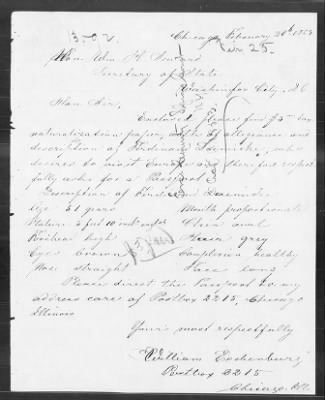 13502
Chicago February 20th 1863
25.
Hon. Wm. H. Seward
Secretary of State
Washington City, D.C.
Hon. Sir,
Enclosed please find $3 tax
naturalization paper, oath of allegiance and
description of Ferdinand who
desires to visit Europe and therefore respect
fully asks for a Passport
Description of Ferdinand
Age 31 years Mouth proportionate
Stature 5 feet 10 inch Chin oval
Forehead high Hair grey
Eyes brown Complexion healthy
Nose straight Face long
Please direct the Passport to my
address care of Postbox 2215, Chicago
Illinois
Yours most respectfully
William Eschenburg
Postbox 2215
Chicago, Ill.